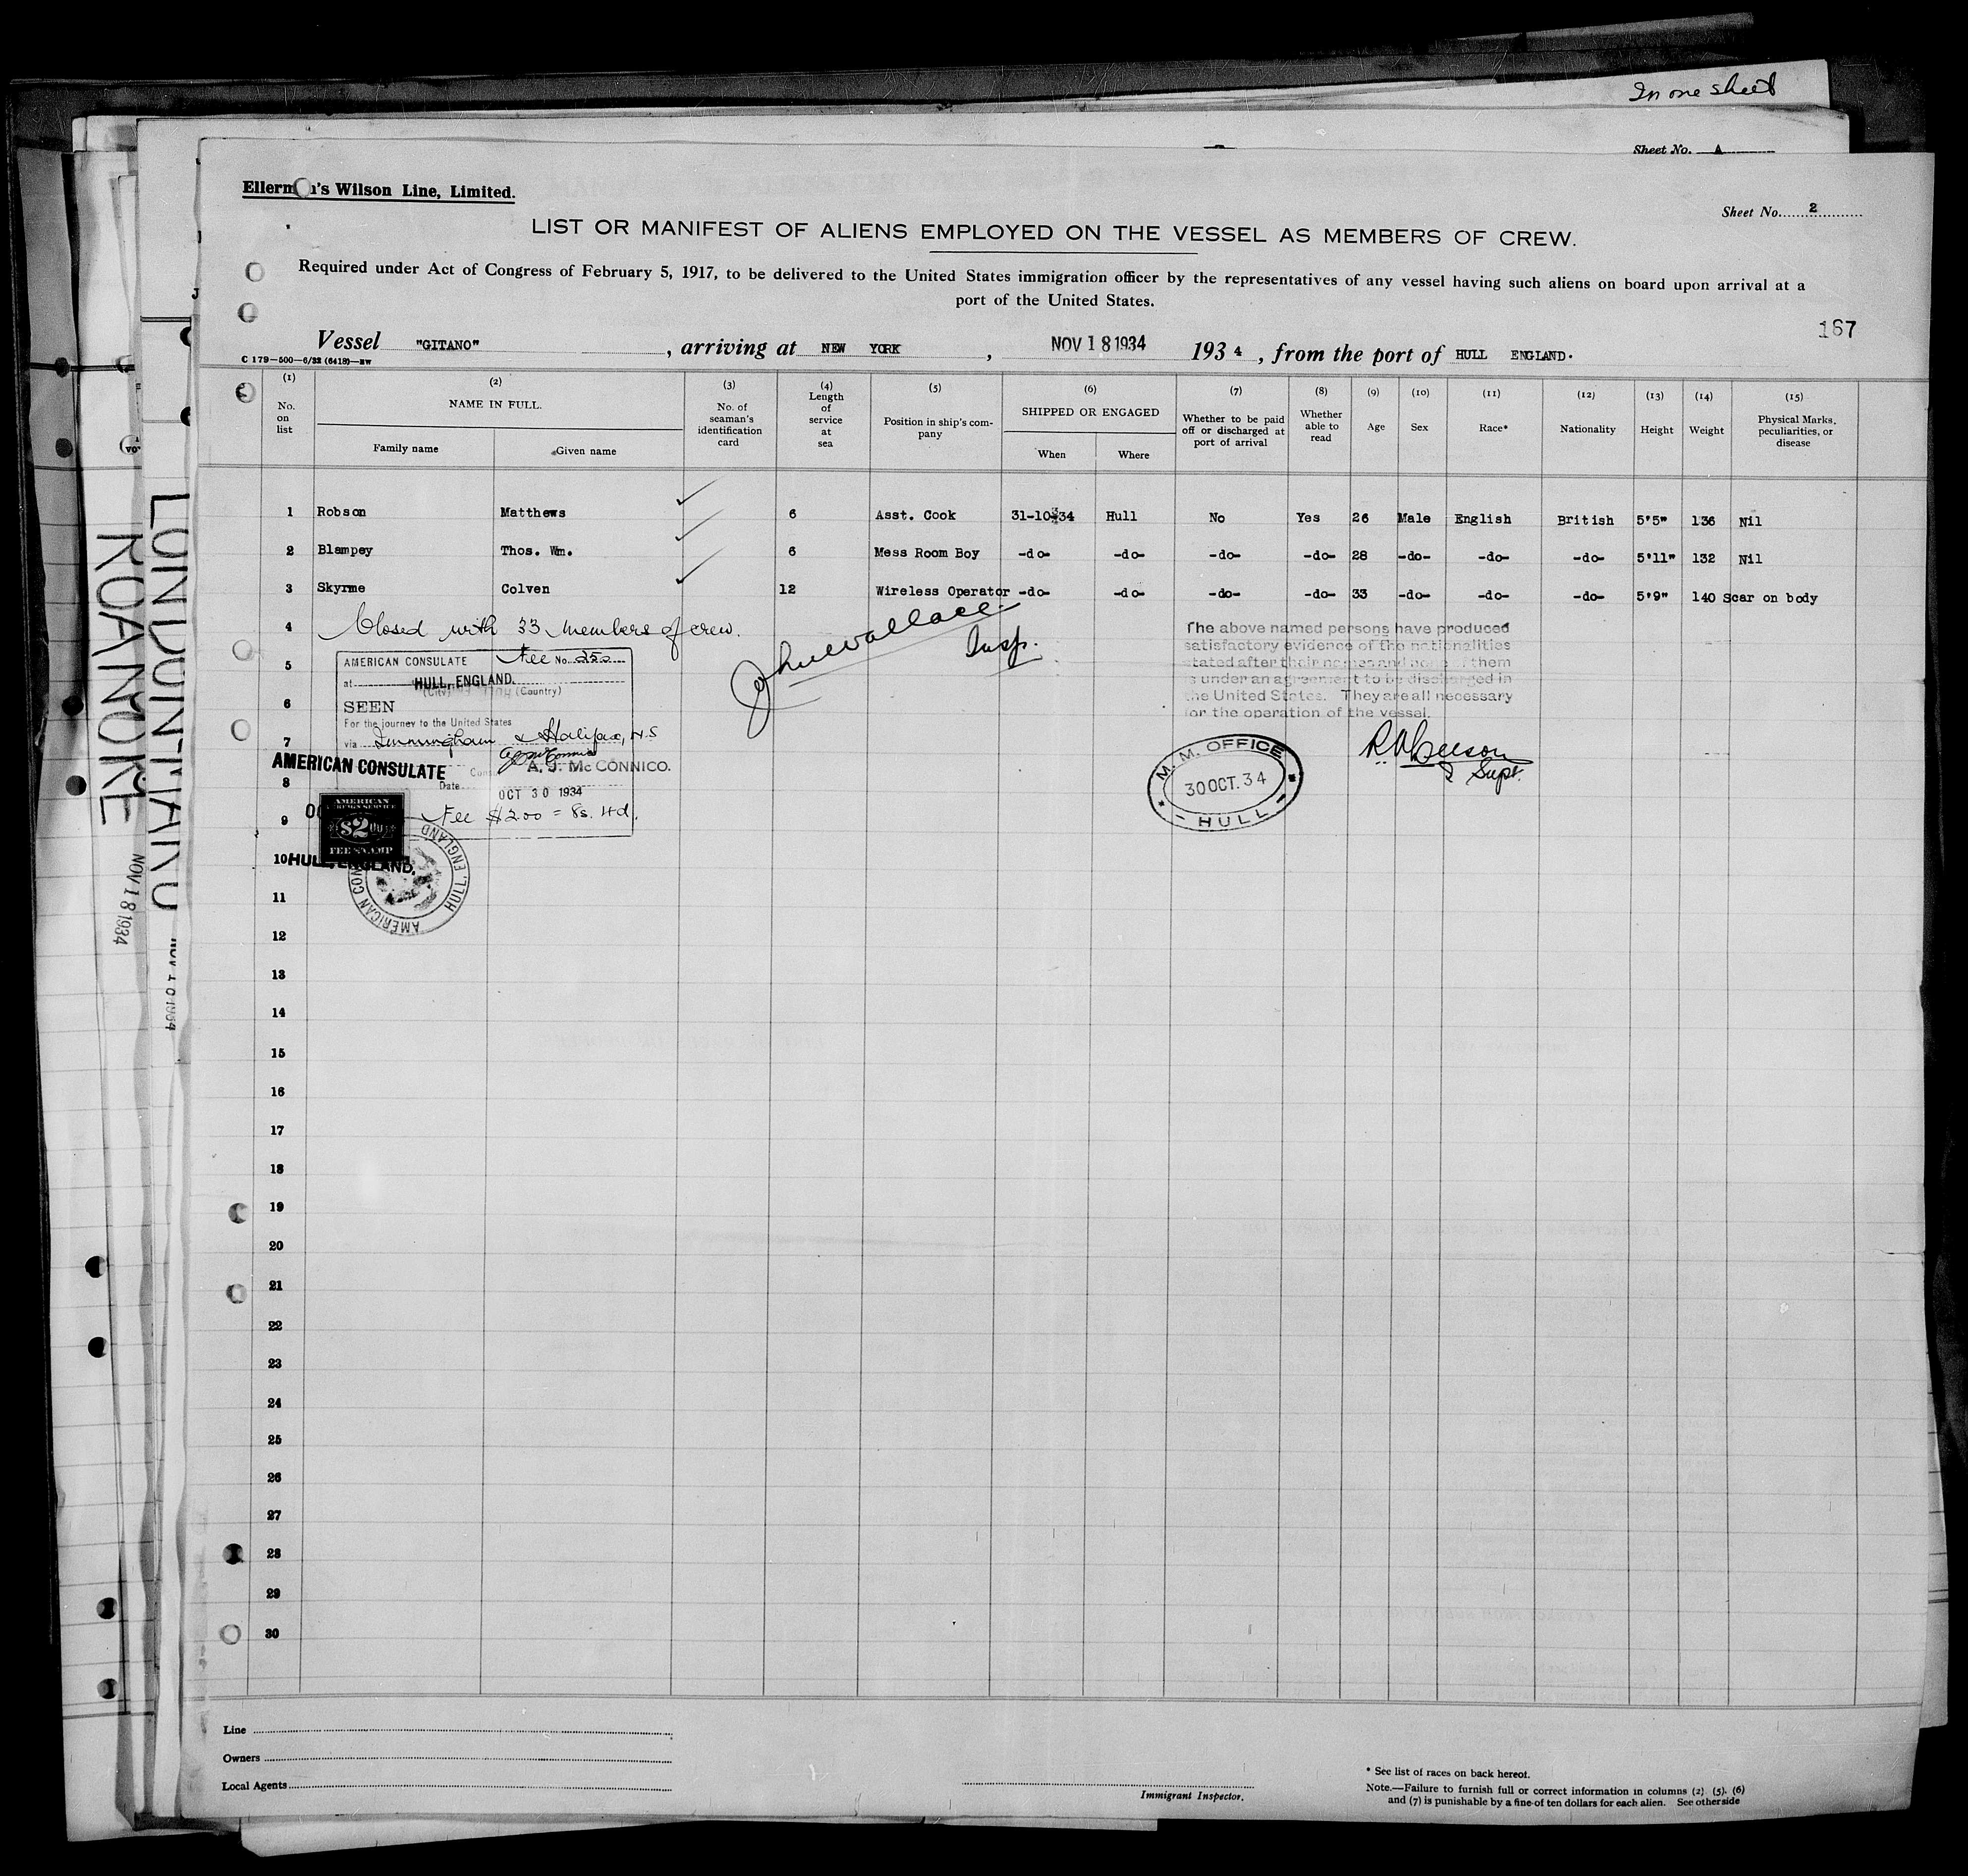 In one sheet
Sheet No. A
Ellerman's Wilson Line, Limited.
Sheet No. 2
LIST OR MANIFEST OF ALIENS EMPLOYED ON THE VESSEL AS MEMBERS OF CREW.
Required under Act of Congress of February 5, 1917, to be delivered to the United States immigration officer by the representatives of any vessel having such aliens on board upon arrival at a
port of the United States.
167
Vessel "GITANO", arriving at NEW YORK, NOV 18 1934 1934, from the port of HULL ENGLAND.
C 179—500—6/32 (6418)—BW
(1) (2) (3) (4) (5) (6) (7) (8) (9) (10) (11) (12) (13) (14) (15)
No. on list
NAME IN FULL.
Family name Given name
No. of seaman's identification card
Length of service at sea
Position in ship's company
SHIPPED OR ENGAGED
When Where
Whether to be paid off or discharged at port of arrival
Whether able to read
Age Sex Race* Nationality Height Weight
Physical Marks, peculiarities, or disease
1 Robson Matthews 6 Asst. Cook 31-10-34 Hull No Yes 26 Male English British 5'5" 136 Nil
2 Blampey Thos. Wm. 6 Mess Room Boy -do- -do- -do- -do- 28 -do- -do- -do- 5'11" 132 Nil
3 Skyrme Colven 12 Wireless Operator -do- -do- -do- -do- 33 -do- -do- -do- 5'9" 140 Scar on body
4 Closed with 33 members of crew.
John Wallace
Insp.
The above named persons have produced
satisfactory evidence of the nationalities
stated after their names and none of them
is under an agreement to be discharged in
the United States. They are all necessary
for the operation of the vessel.
5
6
7
8
9
10
AMERICAN CONSULATE Fee No. 250
at HULL, ENGLAND.
(City) (Country)
SEEN
For the journey to the United States
via Immingham & Halifax, N.S
A. J. McCONNICO.
AMERICAN CONSULATE
Date OCT 30 1934
Fee $2.00 = 8s. 4d.
AMERICAN
FOREIGN SERVICE
$2.00
FEE STAMP
HULL, ENGLAND.
AMERICAN CON HULL, ENGLAND
M. M. OFFICE
30 OCT. 34
HULL
Supt.
11
12
13
14
15
16
17
18
19
20
21
22
23
24
25
26
27
28
29
30
Line
Owners
Local Agents
Immigrant Inspector.
* See list of races on back hereof.
Note.—Failure to furnish full or correct information in columns (2) (5), (6)
and (7) is punishable by a fine of ten dollars for each alien. See other side
ROANOKE
NOV 18 1934